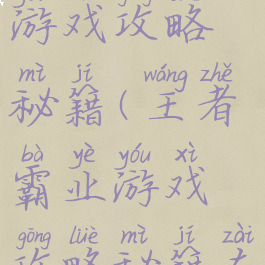 游戏攻略
mì jí wáng zhě
秘籍(王者
bà yè yóu xì
霸业游戏
gōng lüè mì jí zài
攻略秘籍在